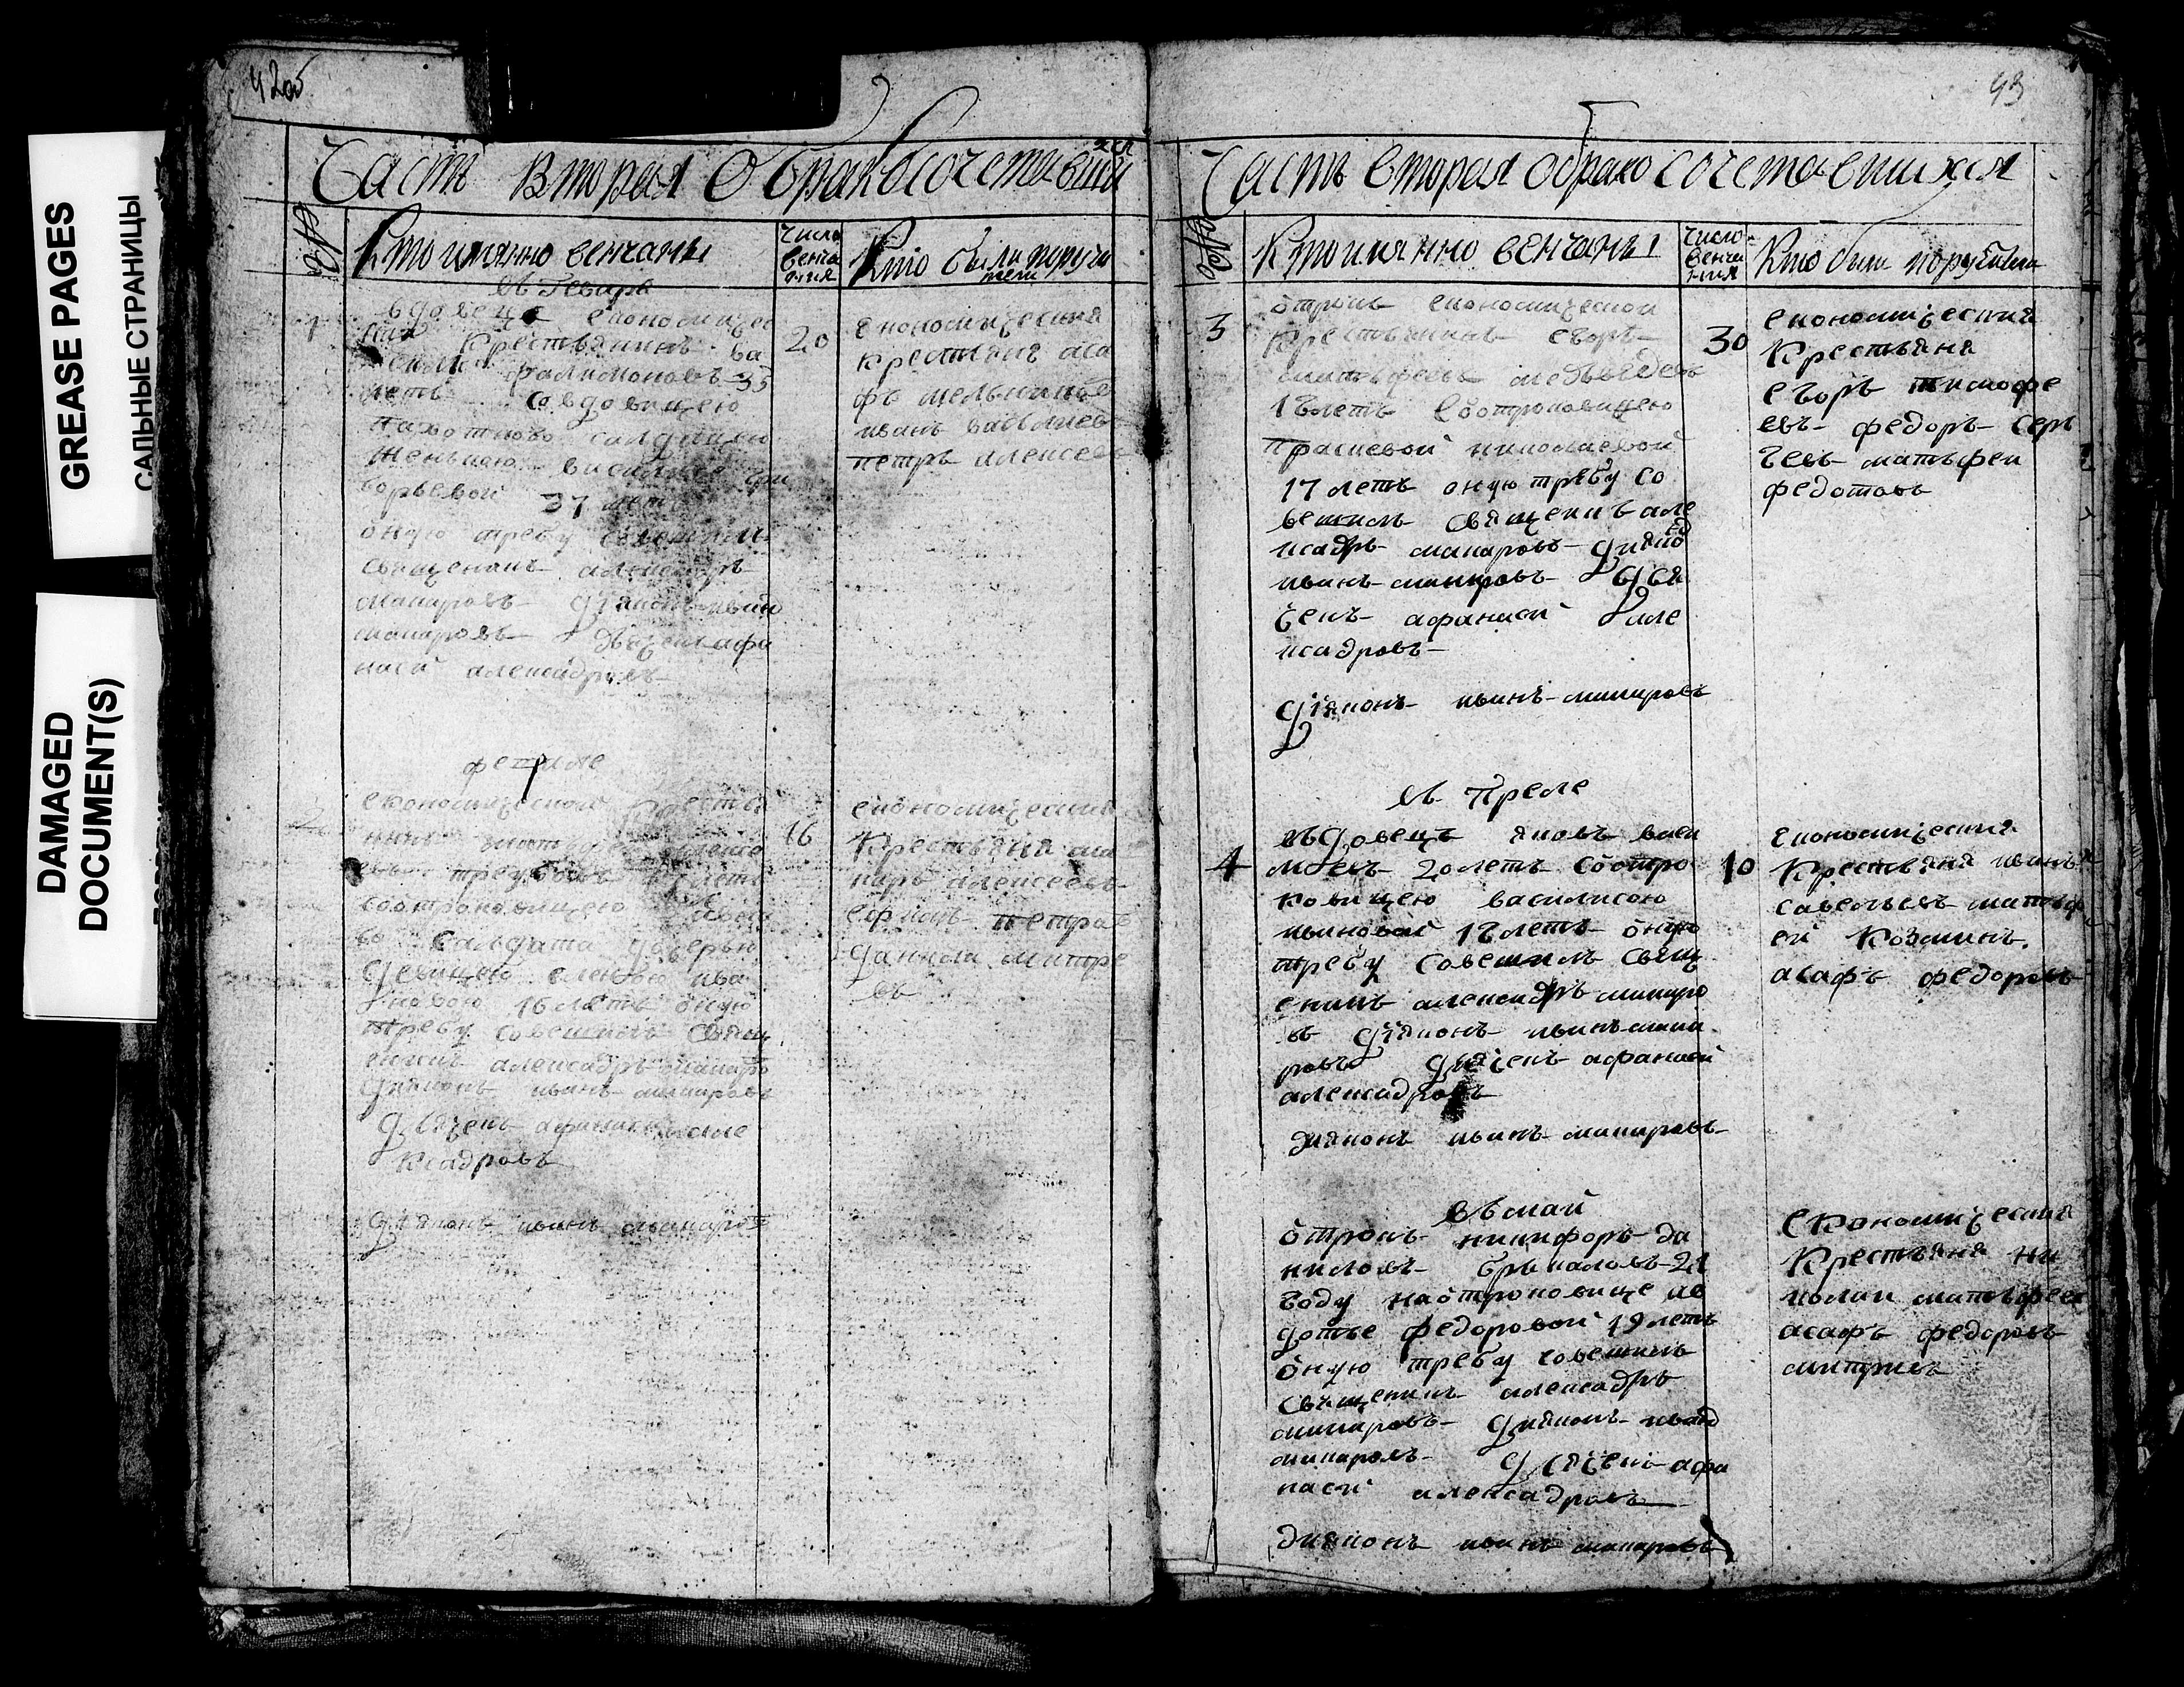 GREASE PAGES
САЛЬНЫЕ СТРАНИЦЫ
DAMAGED
DOCUMENT(S)
42об
Часть вторая О бракосочетавшихся
№
Кто имянно венчаны
Число венчания
Кто были поручители
въ Генваре
1
вдовецъ економичес
кий крестьянинъ
33
летъ со вдовицею
салдацкою
женкою василисою гри
горьевой 37 летъ
оную требу совешилъ
священикъ алексадръ
макаровъ диякон иванъ
макаровъ дьячекъ афа
насий алексадровъ
20
економическия
крестьяня аса
фъ мельников
иванъ васильев
петръ алексеев
2
економической крестья
нинъ
летъ
соотроковицею
салдата дочерью
девицею еленою ива
новою 16 летъ оную
требу совешилъ свящ
еникъ алексадръ макаро
диякон иванъ макаровъ
дьячекъ афанасей але
ксадровъ
16
економическия
крестьяня ма
каръ алексеевъ
ефимъ петров
данила митре
въ
диякон иванъ макаровъ
43
Часть вторая о бракосочетавшихся
№
Кто имянно венчаны
Число венчания
Кто были поручители
3
отрокъ економической
крестьянинъ егоръ
матьфеевъ медведевъ
18 летъ соотроковицею
праскевой николаевой
17 летъ оную требу со
вешилъ священикъ але
ксадръ макаровъ диякон
иванъ макаровъ дья
чекъ афанасей але
ксадровъ
30
економическия
крестьяня
егоръ тимофе
евъ федоръ серг
еевъ матьфеи
федотовъ
диякон иванъ макаровъ
въ Апреле
4
въдовецъ яковъ васи
льевъ 20 летъ соотро
ковицею василисою
ивановой 18 летъ оную
требу совешилъ свящ
еникъ алексадръ макаро
въ дияконъ иванъ мака
ровъ дьячекъ афанасей
алексадровъ
10
економическия
крестьяня иванъ
савельевъ матвѣ
ей козминъ
асафъ федоровъ
дияконъ иванъ макаровъ
въ май
отрокъ никифоръ да
ниловъ 21
году на отроковице ав
дотье федоровой 19 летъ
оную требу совешилъ
священикъ алексадръ
макаровъ дияконъ иванъ
макаровъ дьячекъ афа
насий алексадровъ
економическия
крестьяня ни
колаи матьфеев
асафъ федоровъ
митриевъ
дияконъ иванъ макаровъ